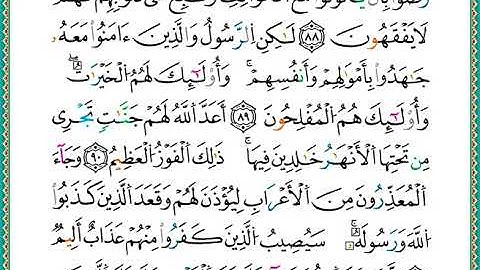 رَضُوا۟ بِأَن يَكُونُوا۟ مَعَ ٱلْخَوَالِفِ وَطُبِعَ عَلَىٰ قُلُوبِهِمْ فَهُمْ
لَا يَفْقَهُونَ ٨٨ لَـٰكِنِ ٱلرَّسُولُ وَٱلَّذِينَ ءَامَنُوا۟ مَعَهُۥ
جَـٰهَدُوا۟ بِأَمْوَٰلِهِمْ وَأَنفُسِهِمْ ۚ وَأُو۟لَـٰٓئِكَ لَهُمُ ٱلْخَيْرَٰتُ ۖ
وَأُو۟لَـٰٓئِكَ هُمُ ٱلْمُفْلِحُونَ ٨٩ أَعَدَّ ٱللَّهُ لَهُمْ جَنَّـٰتٍ تَجْرِى
مِن تَحْتِهَا ٱلْأَنْهَـٰرُ خَـٰلِدِينَ فِيهَا ۚ ذَٰلِكَ ٱلْفَوْزُ ٱلْعَظِيمُ ٩٠ وَجَآءَ
ٱلْمُعَذِّرُونَ مِنَ ٱلْأَعْرَابِ لِيُؤْذَنَ لَهُمْ وَقَعَدَ ٱلَّذِينَ كَذَبُوا۟
ٱللَّهَ وَرَسُولَهُۥ ۚ سَيُصِيبُ ٱلَّذِينَ كَفَرُوا۟ مِنْهُمْ عَذَابٌ أَلِيمٌ